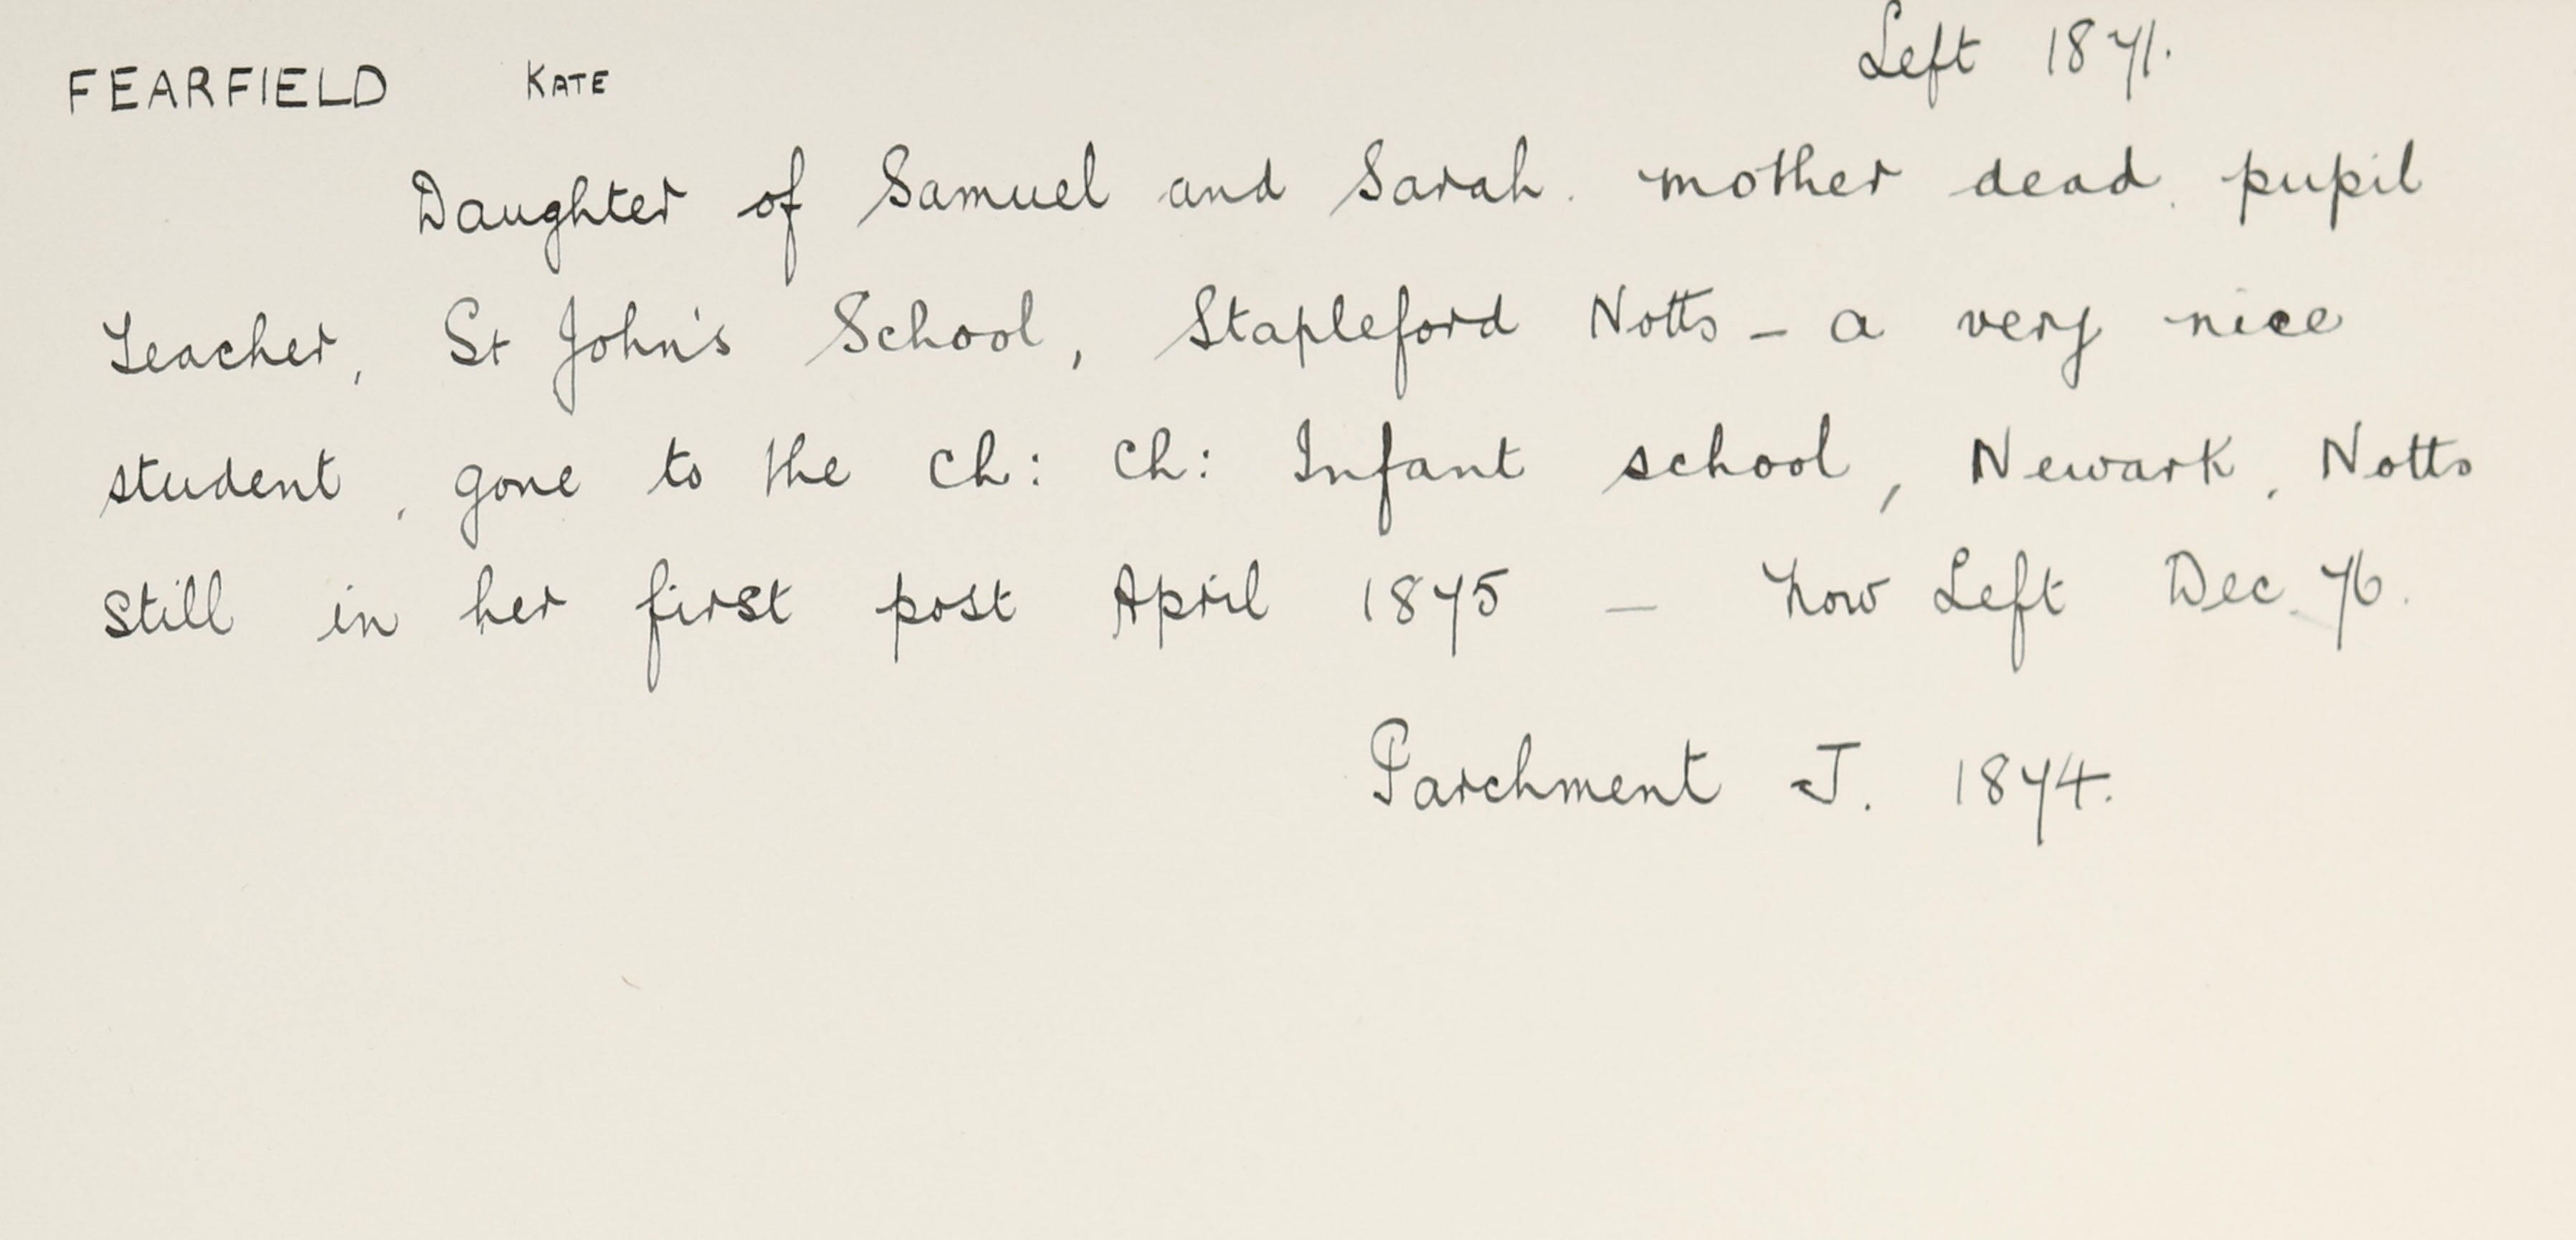 FEARFIELD KATE Left 1871.
Daughter of Samuel and Sarah. mother dead. pupil
Teacher, St John's School, Stapleford Notts - a very nice
student, gone to the Ch: Ch: Infant school, Newark, Notts
Still in her first post April 1875 - now Left Dec. 76.
Parchment J. 1874.